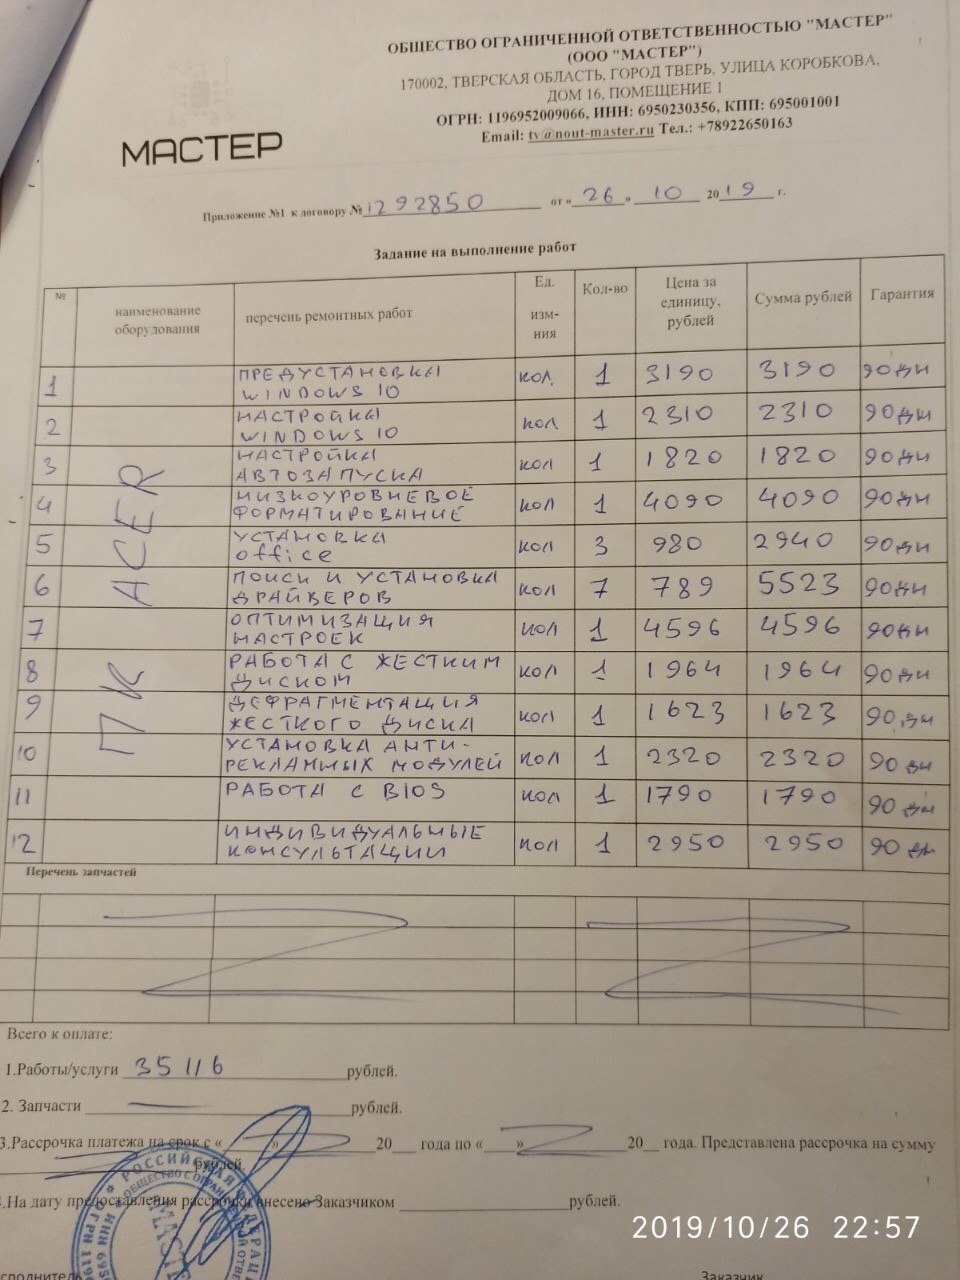 ОБЩЕСТВО ОГРАНИЧЕННОЙ ОТВЕТСТВЕННОСТЬЮ "МАСТЕР"
(ООО "МАСТЕР")
170002, ТВЕРСКАЯ ОБЛАСТЬ, ГОРОД ТВЕРЬ, УЛИЦА КОРОБКОВА,
ДОМ 16, ПОМЕЩЕНИЕ 1
ОГРН: 1196952009066, ИНН: 6950230356, КПП: 695001001
Email: tv@nout-master.ru Тел.: +78922650163
МАСТЕР
Приложение №1 к договору № 1292850 от «26» 10 2019 г.
Задание на выполнение работ
№ наименование оборудования перечень ремонтных работ Ед. изм-ния Кол-во Цена за единицу, рублей Сумма рублей Гарантия
1 ПРЕДУСТАНОВКА WINDOWS 10 кол. 1 3190 3190 90 дн
2 НАСТРОЙКА WINDOWS 10 кол 1 2310 2310 90 дн
3 НАСТРОЙКА АВТОЗАПУСКА кол 1 1820 1820 90 дн
4 НИЗКОУРОВНЕВОЕ ФОРМАТИРОВАНИЕ кол 1 4090 4090 90 дн
5 УСТАНОВКА office кол 3 980 2940 90 дн
6 ПОИСК И УСТАНОВКА ДРАЙВЕРОВ кол 7 789 5523 90 дн
7 ОПТИМИЗАЦИЯ НАСТРОЕК кол 1 4596 4596 90 дн
8 РАБОТА С ЖЕСТКИМ ДИСКОМ кол 1 1964 1964 90 дн
9 ДЕФРАГМЕНТАЦИЯ ЖЕСТКОГО ДИСКА кол 1 1623 1623 90 дн
10 УСТАНОВКА АНТИ-РЕКЛАМНЫХ МОДУЛЕЙ кол 1 2320 2320 90 дн
11 РАБОТА С BIOS кол 1 1790 1790 90 дн
12 ИНДИВИДУАЛЬНЫЕ КОНСУЛЬТАЦИИ кол 1 2950 2950 90 дн
ПК ACER
Перечень запчастей
Всего к оплате:
1.Работы/услуги 35116 рублей.
2. Запчасти — рублей.
3.Рассрочка платежа на срок с « » 20 года по « » 20 года. Представлена рассрочка на сумму
рублей.
.На дату предоставления рассрочки внесено Заказчиком рублей.
2019/10/26 22:57
Заказчик